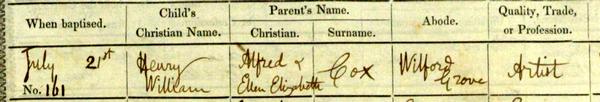 When baptised. Child's Christian Name. Parent's Name. Abode. Quality, Trade, or Profession.
Christian. Surname.
July 21st Henry Alfred & Cox Wilford Artist
No. 161 William Ellen Elizabeth Grove